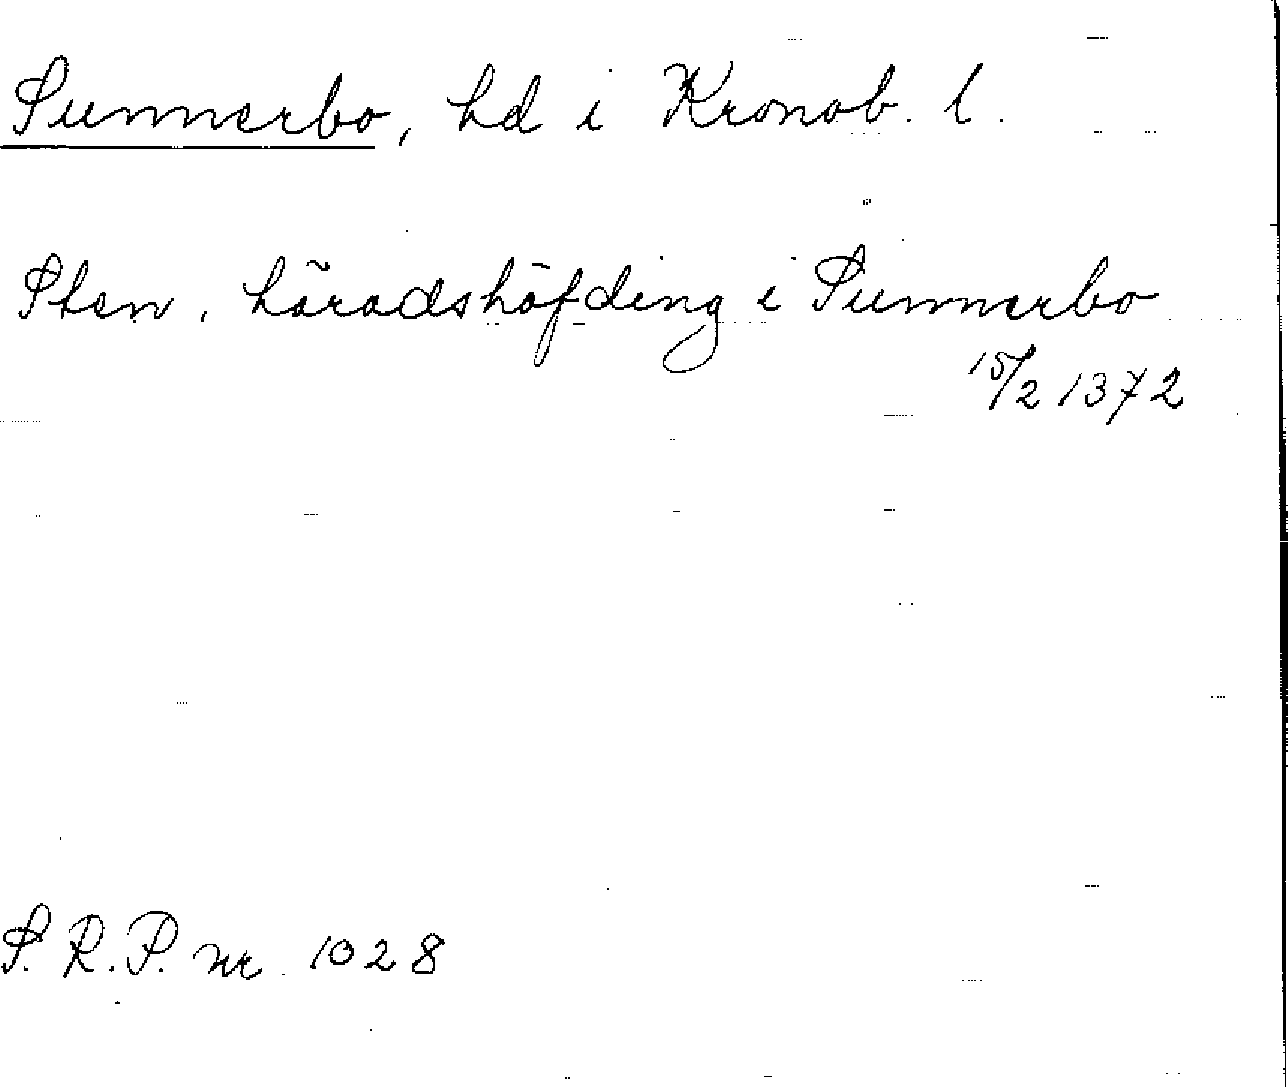 Sunnerbo, hd i Kronob. l.
Sten, häradshöfding i Sunnerbo
15/2 1372
S. R. P. nr 1028